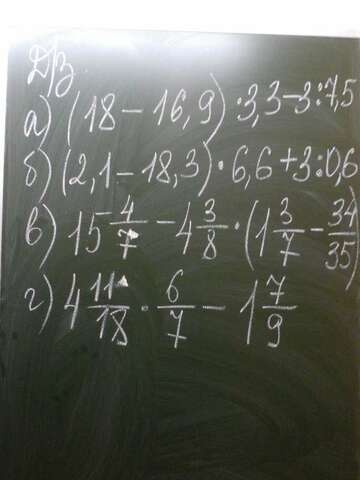 Д/З
а) (18 − 16,9) · 3,3 − 3 : 7,5
б) (2,1 − 18,3) · 6,6 + 3 : 0,6
в) 15 4/7 − 4 3/8 · (1 3/7 − 34/35)
г) 4 11/18 · 6/7 − 1 7/9